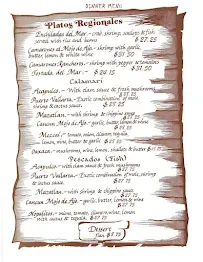 DINNER MENU
Platos Regionales
Enchiladas del Mar - crab, shrimp, scallops & fish
served with rice and beans $27.25
Camarones de Mojo de Ajo - shrimp with garlic,
butter, lemon & white wine $31.50
Camarones Rancheros - shrimp with pepper & tomatoes
$31.50
Tostada del Mar - $24.15
Calamari
Acapulco - With clam sauce & fresh mushrooms
$27.25
Puerto Vallarta - Exotic combination of
shrimp & cactus sauce. $27.25
Mazatlan - with shrimp & chipotle sauce
$27.25
Cancun Mojo de Ajo - garlic, butter, lemon & wine
$27.25
Mezcal - tomato, onion, cilantro, tequila,
lemon, wine, butter & garlic $27.25
Oaxaca - mushrooms, wine, lemon, shallots & butter
Pescados (Fish)
Acapulco - with clam sauce & fresh mushrooms
$27.25
Puerto Vallarta - Exotic combination of fruits, shrimp
& cactus sauce. $27.25
Mazatlan - with shrimp & chipotle sauce
$27.25
Cancun Mojo de Ajo - garlic, butter, lemon & wine
$27.25
Nopalitos - onions, tomato, cilantro, wine, lemon
with cactus & tequila. $27.25
Dessert
flan $7.75